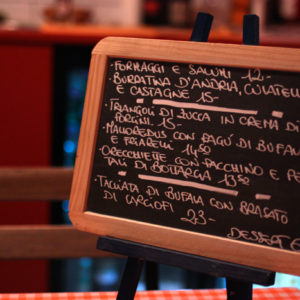 · FORMAGGI E SALUMI 12-
· BURRATINA D'ANDRIA, CULATEL
E CASTAGNE 15-
· TRIANGOLI DI ZUCCA IN CREMA DI
PORCINI 15-
· MALLOREDUS CON RAGÚ DI BUFAL
E FRIARELLI 14,50
· ORECCHIETTE CON PACCHINO E PE
TALI DI BOTTARGA 13,50
· TAGLIATA DI BUFALA CON BRASATO
DI CARCIOFI 23-
DESSERT